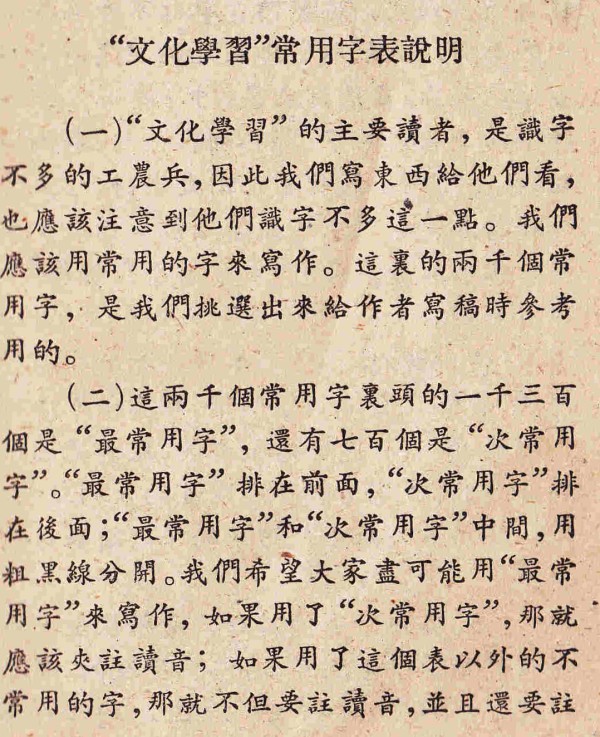 “文化學習”常用字表說明
(一)“文化學習”的主要讀者，是識字
不多的工農兵，因此我們寫東西給他們看，
也應該注意到他們識字不多這一點。我們
應該用常用的字來寫作。這裏的兩千個常
用字，是我們挑選出來給作者寫稿時參考
用的。
(二)這兩千個常用字裏頭的一千三百
個是“最常用字”，還有七百個是“次常用
字”。“最常用字”排在前面，“次常用字”排
在後面；“最常用字”和“次常用字”中間，用
粗黑線分開。我們希望大家盡可能用“最常
用字”來寫作，如果用了“次常用字”，那就
應該夾註讀音；如果用了這個表以外的不
常用的字，那就不但要註讀音，並且還要註